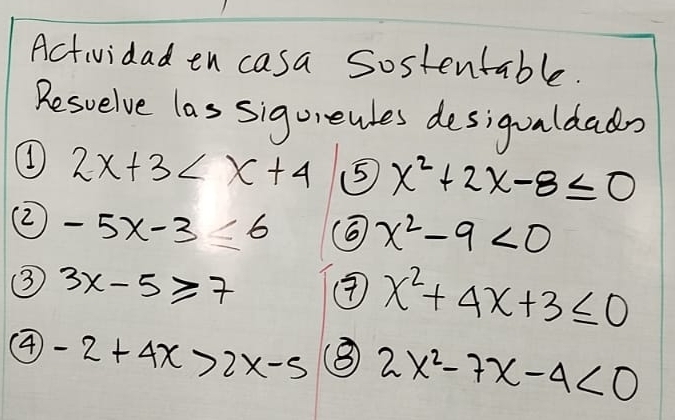 Actividad en casa Sostentable.
Resuelve las siguientes desigualdades
① 2x+3 < x+4
② -5x-3 ≤ 6
③ 3x-5 ≥ 7
④ -2+4x > 2x-5
⑤ x²+2x-8 ≤ 0
⑥ x²-9 < 0
⑦ x²+4x+3 ≤ 0
⑧ 2x²-7x-4 < 0